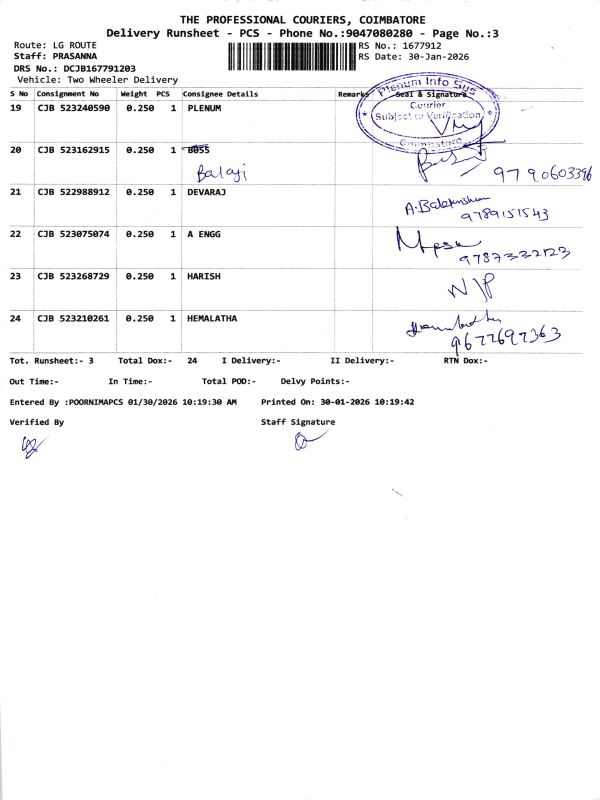 THE PROFESSIONAL COURIERS, COIMBATORE
Delivery Runsheet - PCS - Phone No.:9047080280 - Page No.:3
Route: LG ROUTE
Staff: PRASANNA
DRS No.: DCJB167791203
Vehicle: Two Wheeler Delivery
RS No.: 1677912
RS Date: 30-Jan-2026
S No Consignment No Weight PCS Consignee Details Remarks Seal & Signature
19 CJB 523240590 0.250 1 PLENUM
Plenum Info Sys
Courier
* Subject to Verification *
Coimbatore
20 CJB 523162915 0.250 1 BOSS
Balaji
21 CJB 522988912 0.250 1 DEVARAJ
9789151543
22 CJB 523075074 0.250 1 A ENGG
23 CJB 523268729 0.250 1 HARISH
N/P
24 CJB 523210261 0.250 1 HEMALATHA
9677697363
Tot. Runsheet:- 3 Total Dox:- 24 I Delivery:- II Delivery:- RTN Dox:-
Out Time:- In Time:- Total POD:- Delvy Points:-
Entered By :POORNIMAPCS 01/30/2026 10:19:30 AM Printed On: 30-01-2026 10:19:42
Verified By Staff Signature